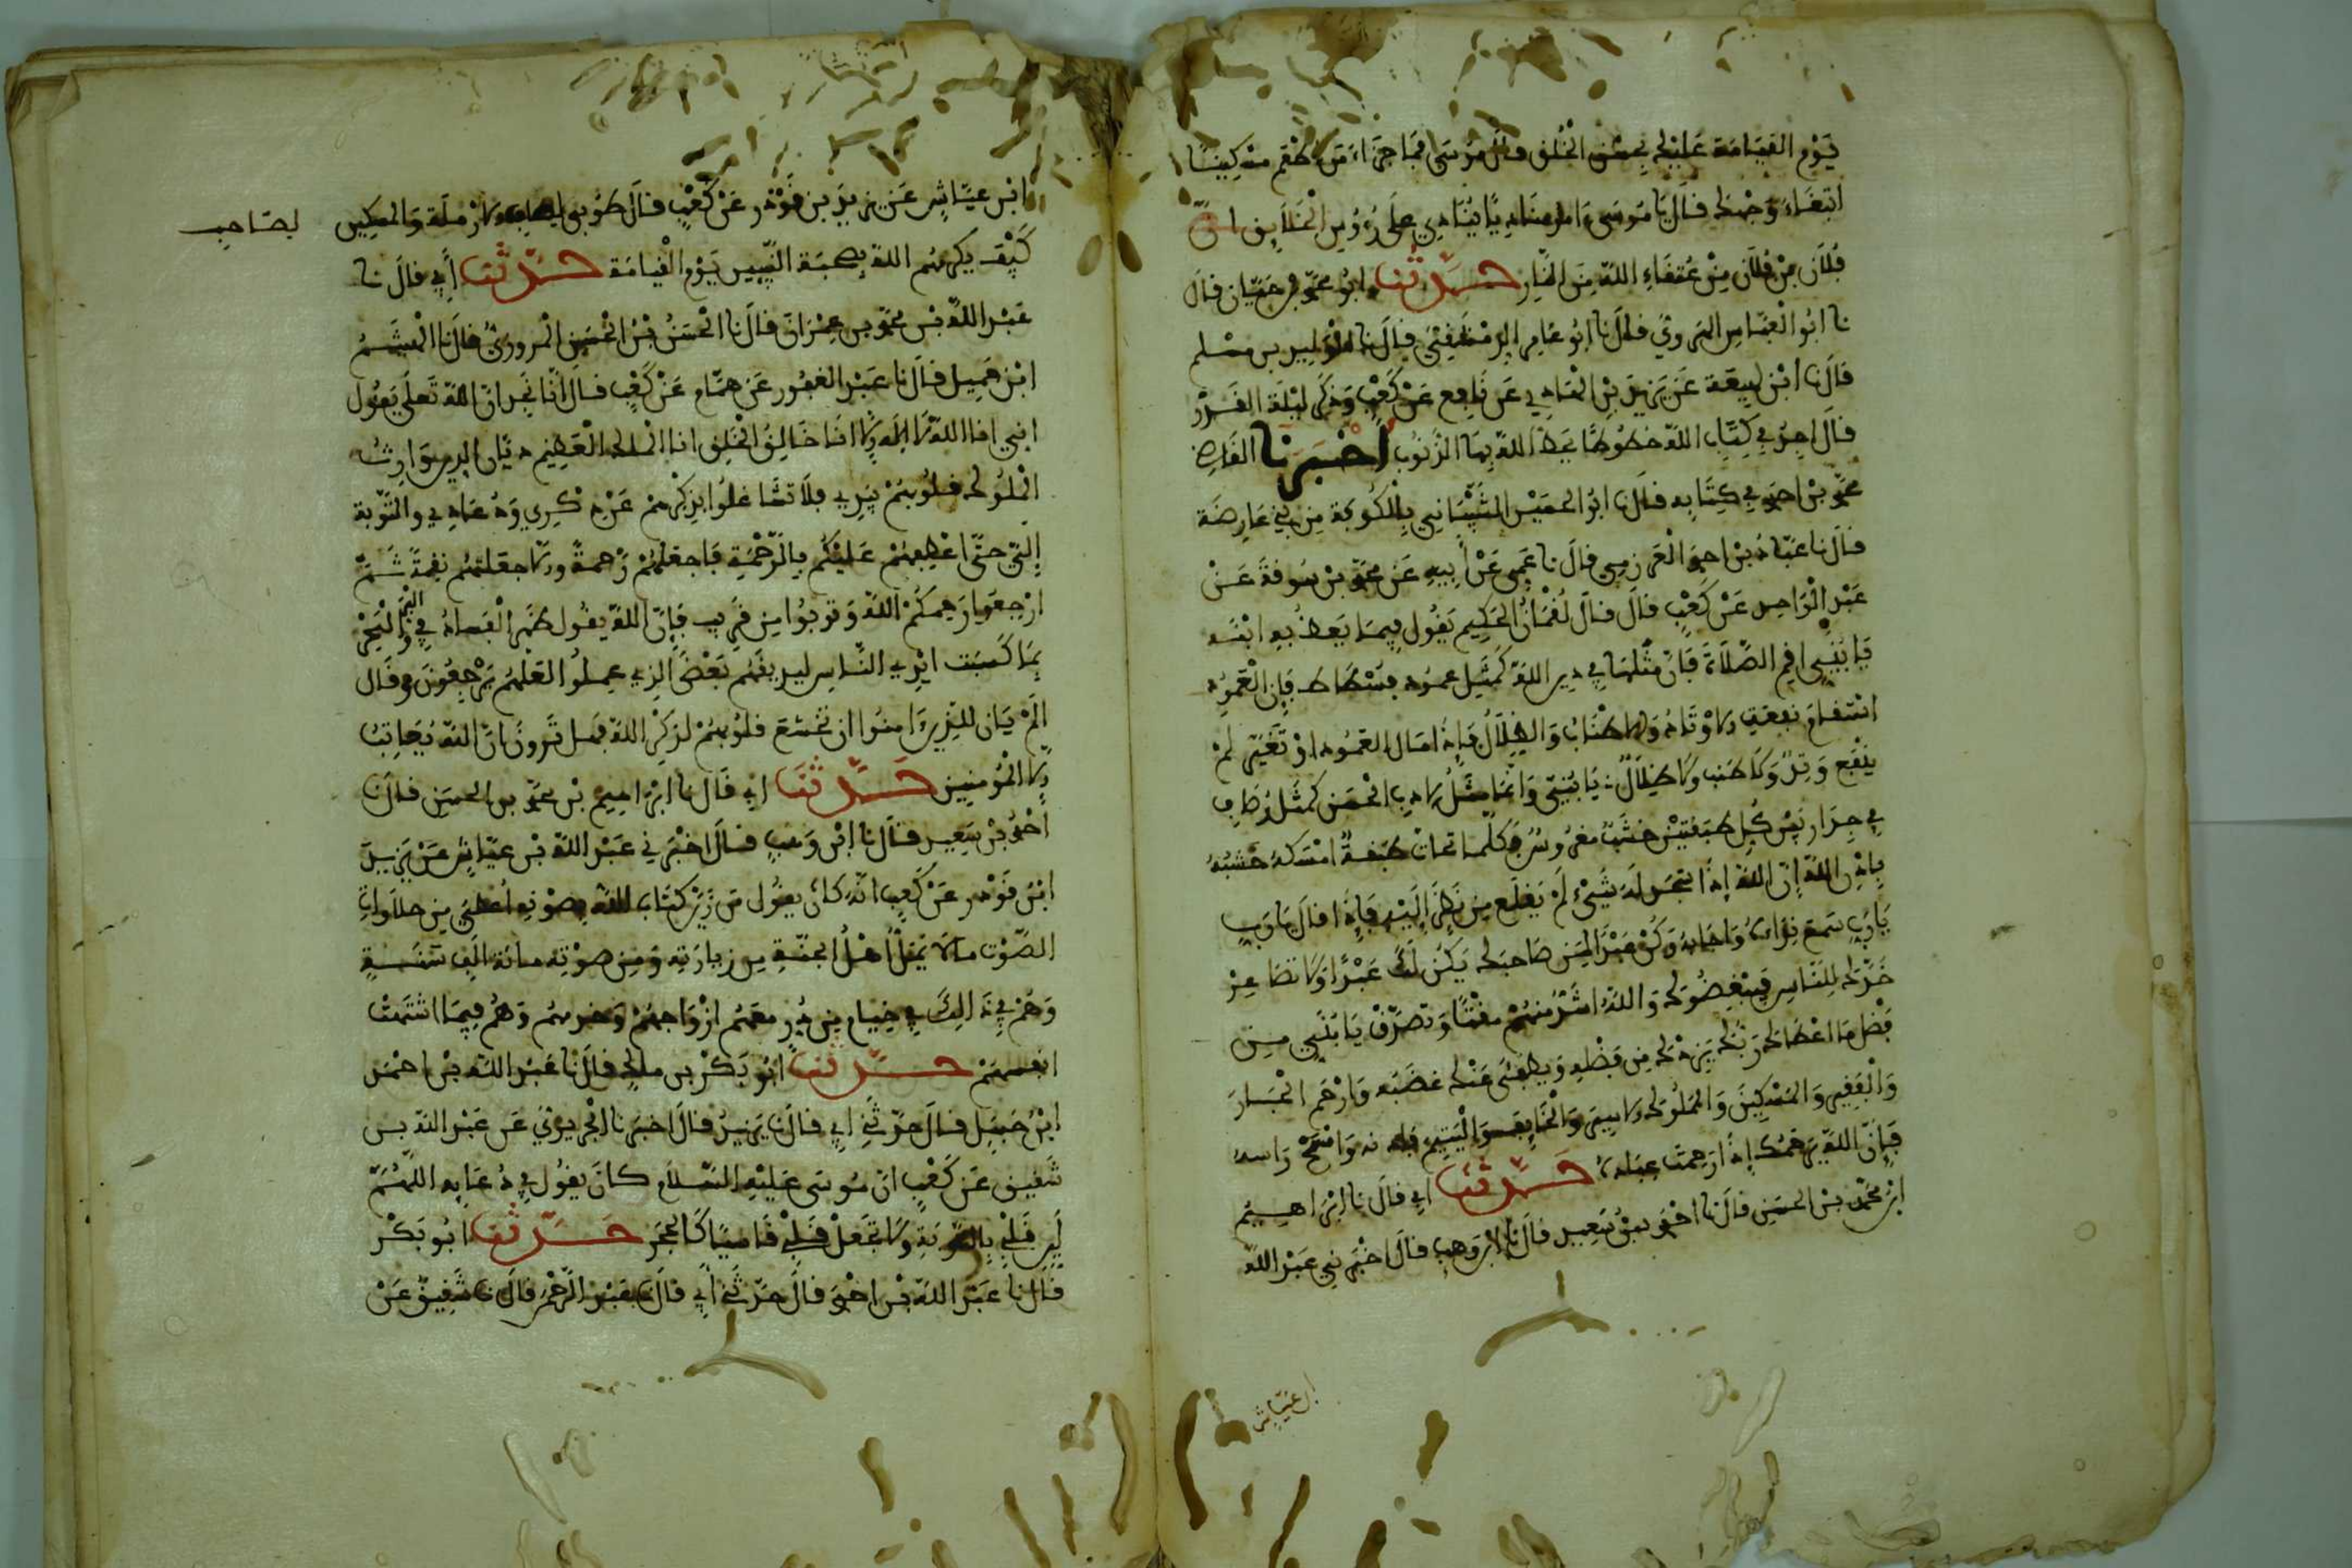 يوم القيامة عليك بحسن الخلق قال موسى فما جزاء من اطعم مسكينا
ابتغاء وجهك قال يا موسى ءامر مناديا ينادي على رءوس الخلايق ان
فلان بن فلان من عتقاء الله من النار حدثنا ابو محمد بن حيان قال
نا ابو العباس الهروي قال نا ابو عامر الدمشقي قال نا الوليد بن مسلم
قال نا ابن لهيعة عن يزيد بن الهادي عن نافع عن كعب وذكر ليلة القدر
قال اجد في كتاب الله حطوطا يحط الله بها الذنوب اخبرنا القاضي
محمد بن احمد في كتابه قال نا ابو الحميس الشيباني بالكوفة من بني عارضة
قال نا عباد بن احمد العرزمي قال نا عمي عن أبيه عن محمد بن سوقة عن
عبد الواحد عن كعب قال قال لقمان الحكيم يقول فيما يعظ به ابنه
يا بني اقم الصلاة فان مثلها في دين الله كمثل عمود فسطاط فإن العمود
استقام نفعت الاوتاد والاطناب والظلال فإذا مال العمود او تغير لم
ينفع وتد ولا طنب ولا ظلال يا بني وانما مثل الادب الحسن كمثل
في جدار بين كل طبقتين خشب مغروس فكلما طبقة امسكه خشبه
باذن الله إن الله إذا لم يقلع من نظر إليه فإذا قال يا رب
يا رب سمع نداءه واجابه وكن عبدا لمن صاحبك يكن لك عبدا ولا تصاعر
خدك للناس فيبغضوك والله اشد منهم مقتا وتصدق يا بني من
فضل ما اعطاك ربك يزدك من فضله ويطفئ عنك غضبه وارحم الجار
والفقير والمسكين والمملوك والاسير والخايف واليتيم وامسح راسه
فإن الله يرحمك إذا رحمت عباده حدثنا ابي قال نا ابراهيم
ابن محمد بن الحسن قال نا احمد بن سعيد قال نا ابن وهب قال اخبرني عبد الله
ابن عياش
ابن عياش عن يزيد بن قوذر عن كعب قال طوبى الارملة والمسكين
لصاحب
كيف يكرمهم الله بصحبة النبيين يوم القيامة حدثنا أبي قال نا
عبد الله بن محمد بن عمران قال نا الحسن بن الحسن المروزي قال نا الهيثم
ابن جميل قال نا عبد الغفور عن همام عن كعب قال انا نجد ان الله تعلى يقول
اني انا الله لا اله إلا انا خالق الخلق انا الملك العظيم ديان الدين وارث
الملوك قلوبهم بيدي فلا تشاغلوا بذكرهم عن ذكري ودعاءي والتوبة
إلي حتى اعطفهم عليكم بالرحمة فاجعلهم رحمة وإلا جعلتهم نقمة ثم
ارجعوا رحمكم الله وتوبوا من قريب فإن الله يقول ظهر الفساد في البر والبحر
بما كسبت ايدي الناس ليذيقهم بعض الذي عملوا لعلهم يرجعون وقال
الم يان للذين ءامنوا ان تخشع قلوبهم لذكر الله فهل ترون ان الله يعاتب
إلا المؤمنين حدثنا ابي قال نا ابراهيم بن محمد بن الحسن قال نا
أحمد بن سعيد قال نا ابن وهب قال اخبرني عبد الله بن عياش عن يزيد
ابن قوذر عن كعب انه كان يقول من زين كتاب الله بصوته اعطي من حلاوة
الصوت ما لا يمل اهل الجنة من زيارته ومن صوته مائة الف سنة
وهم في ذلك في خيام من در معهم ازواجهم وخدمهم وهم فيما اشتهت
انفسهم حدثنا ابو بكر بن مالك قال نا عبد الله بن احمد
ابن حنبل قال حدثني ابي قال نا يزيد قال اخبرنا الجريري عن عبد الله بن
شقيق عن كعب ان موسى عليه السلام كان يقول في دعايه اللهم
لين قلبي بالتوبة ولا تجعل قلبي قاسيا كالحجر حدثنا ابو بكر
قال نا عبد الله بن احمد قال حدثني أبي قال نا عبد الرحمن قال نا شقيق عن